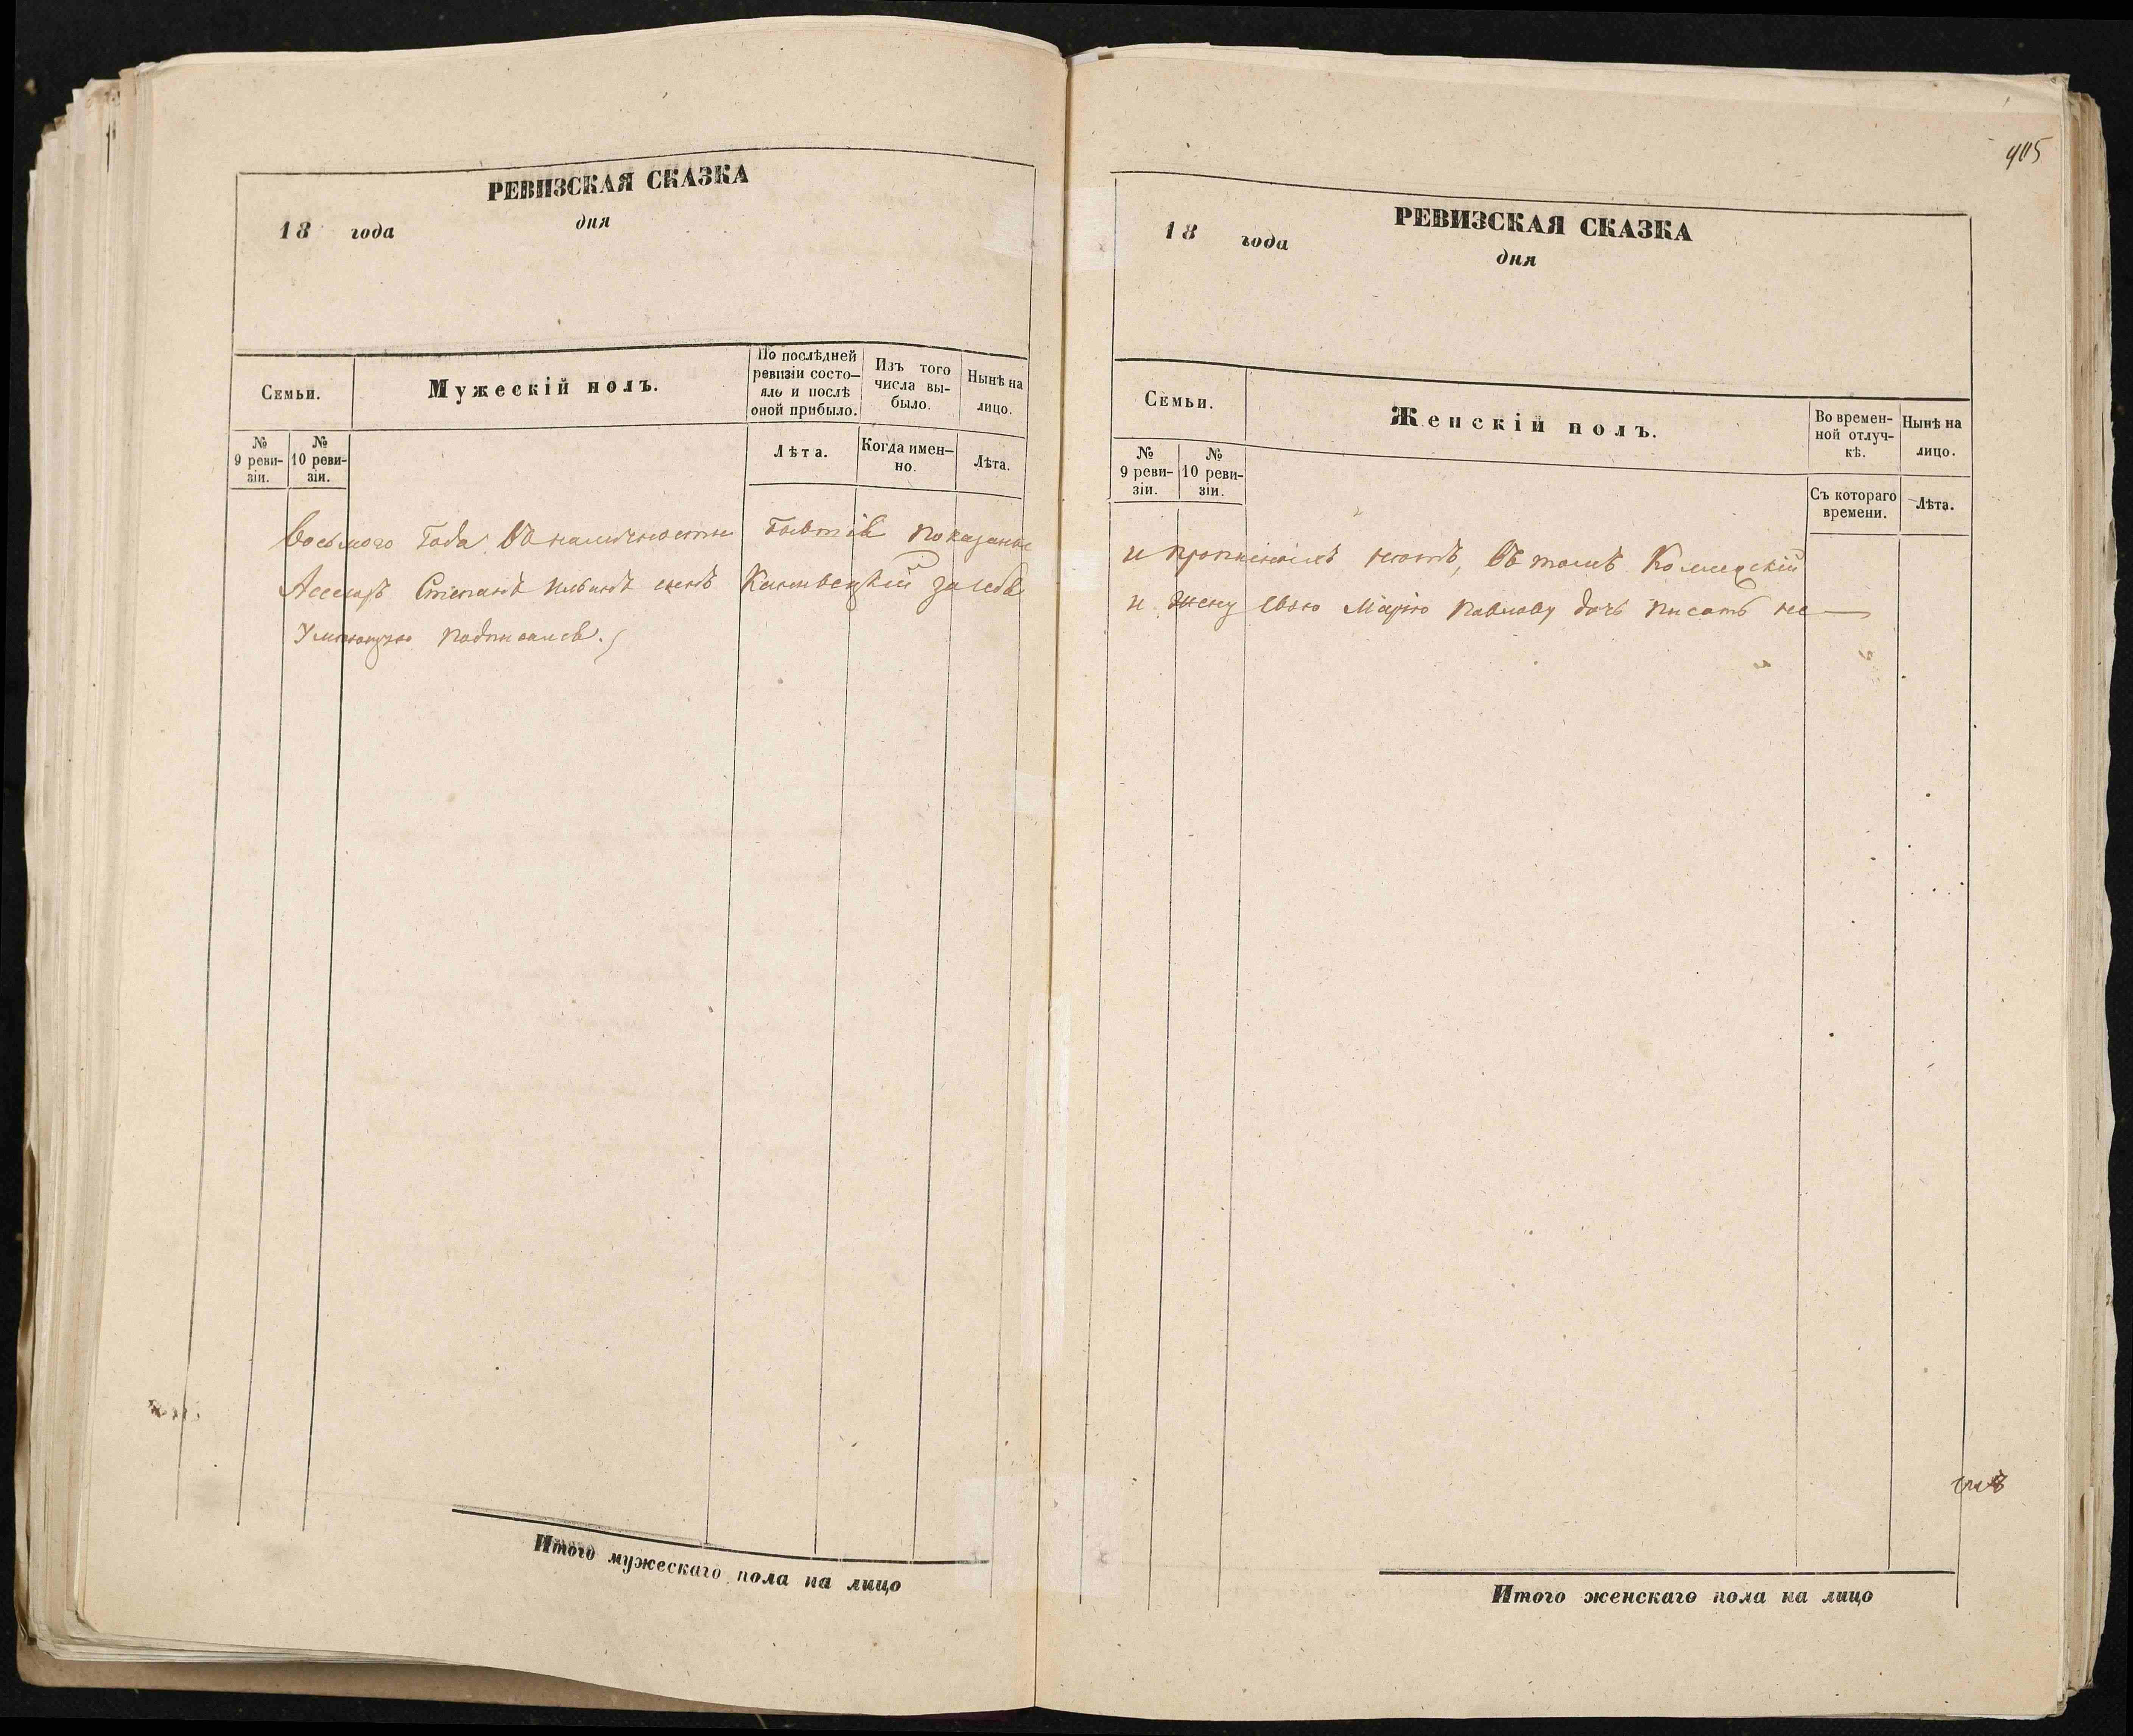 РЕВИЗСКАЯ СКАЗКА
18 года дня
Семьи.
Мужескій полъ.
По послѣдней ревизіи состо-
яло и послѣ оной прибыло.
Изъ того числа вы-
было.
Нынѣ на лицо.
№ 9 реви-
зіи.
№ 10 реви-
зіи.
Лѣта.
Когда имен-
но.
Лѣта.
Восьмого Года въ наличности
Ассесоръ Степанъ сынъ за себя
подписался.
Итого мужескаго пола на лицо
405
РЕВИЗСКАЯ СКАЗКА
18 года дня
Семьи.
Женскій полъ.
Во времен-
ной отлуч-
кѣ.
Нынѣ на лицо.
№ 9 реви-
зіи.
№ 10 реви-
зіи.
Съ котораго времени.
Лѣта.
и нетъ, въ томъ Коллежскій
и жену свою Марію Павлову дочь писать не
Итого женскаго пола на лицо